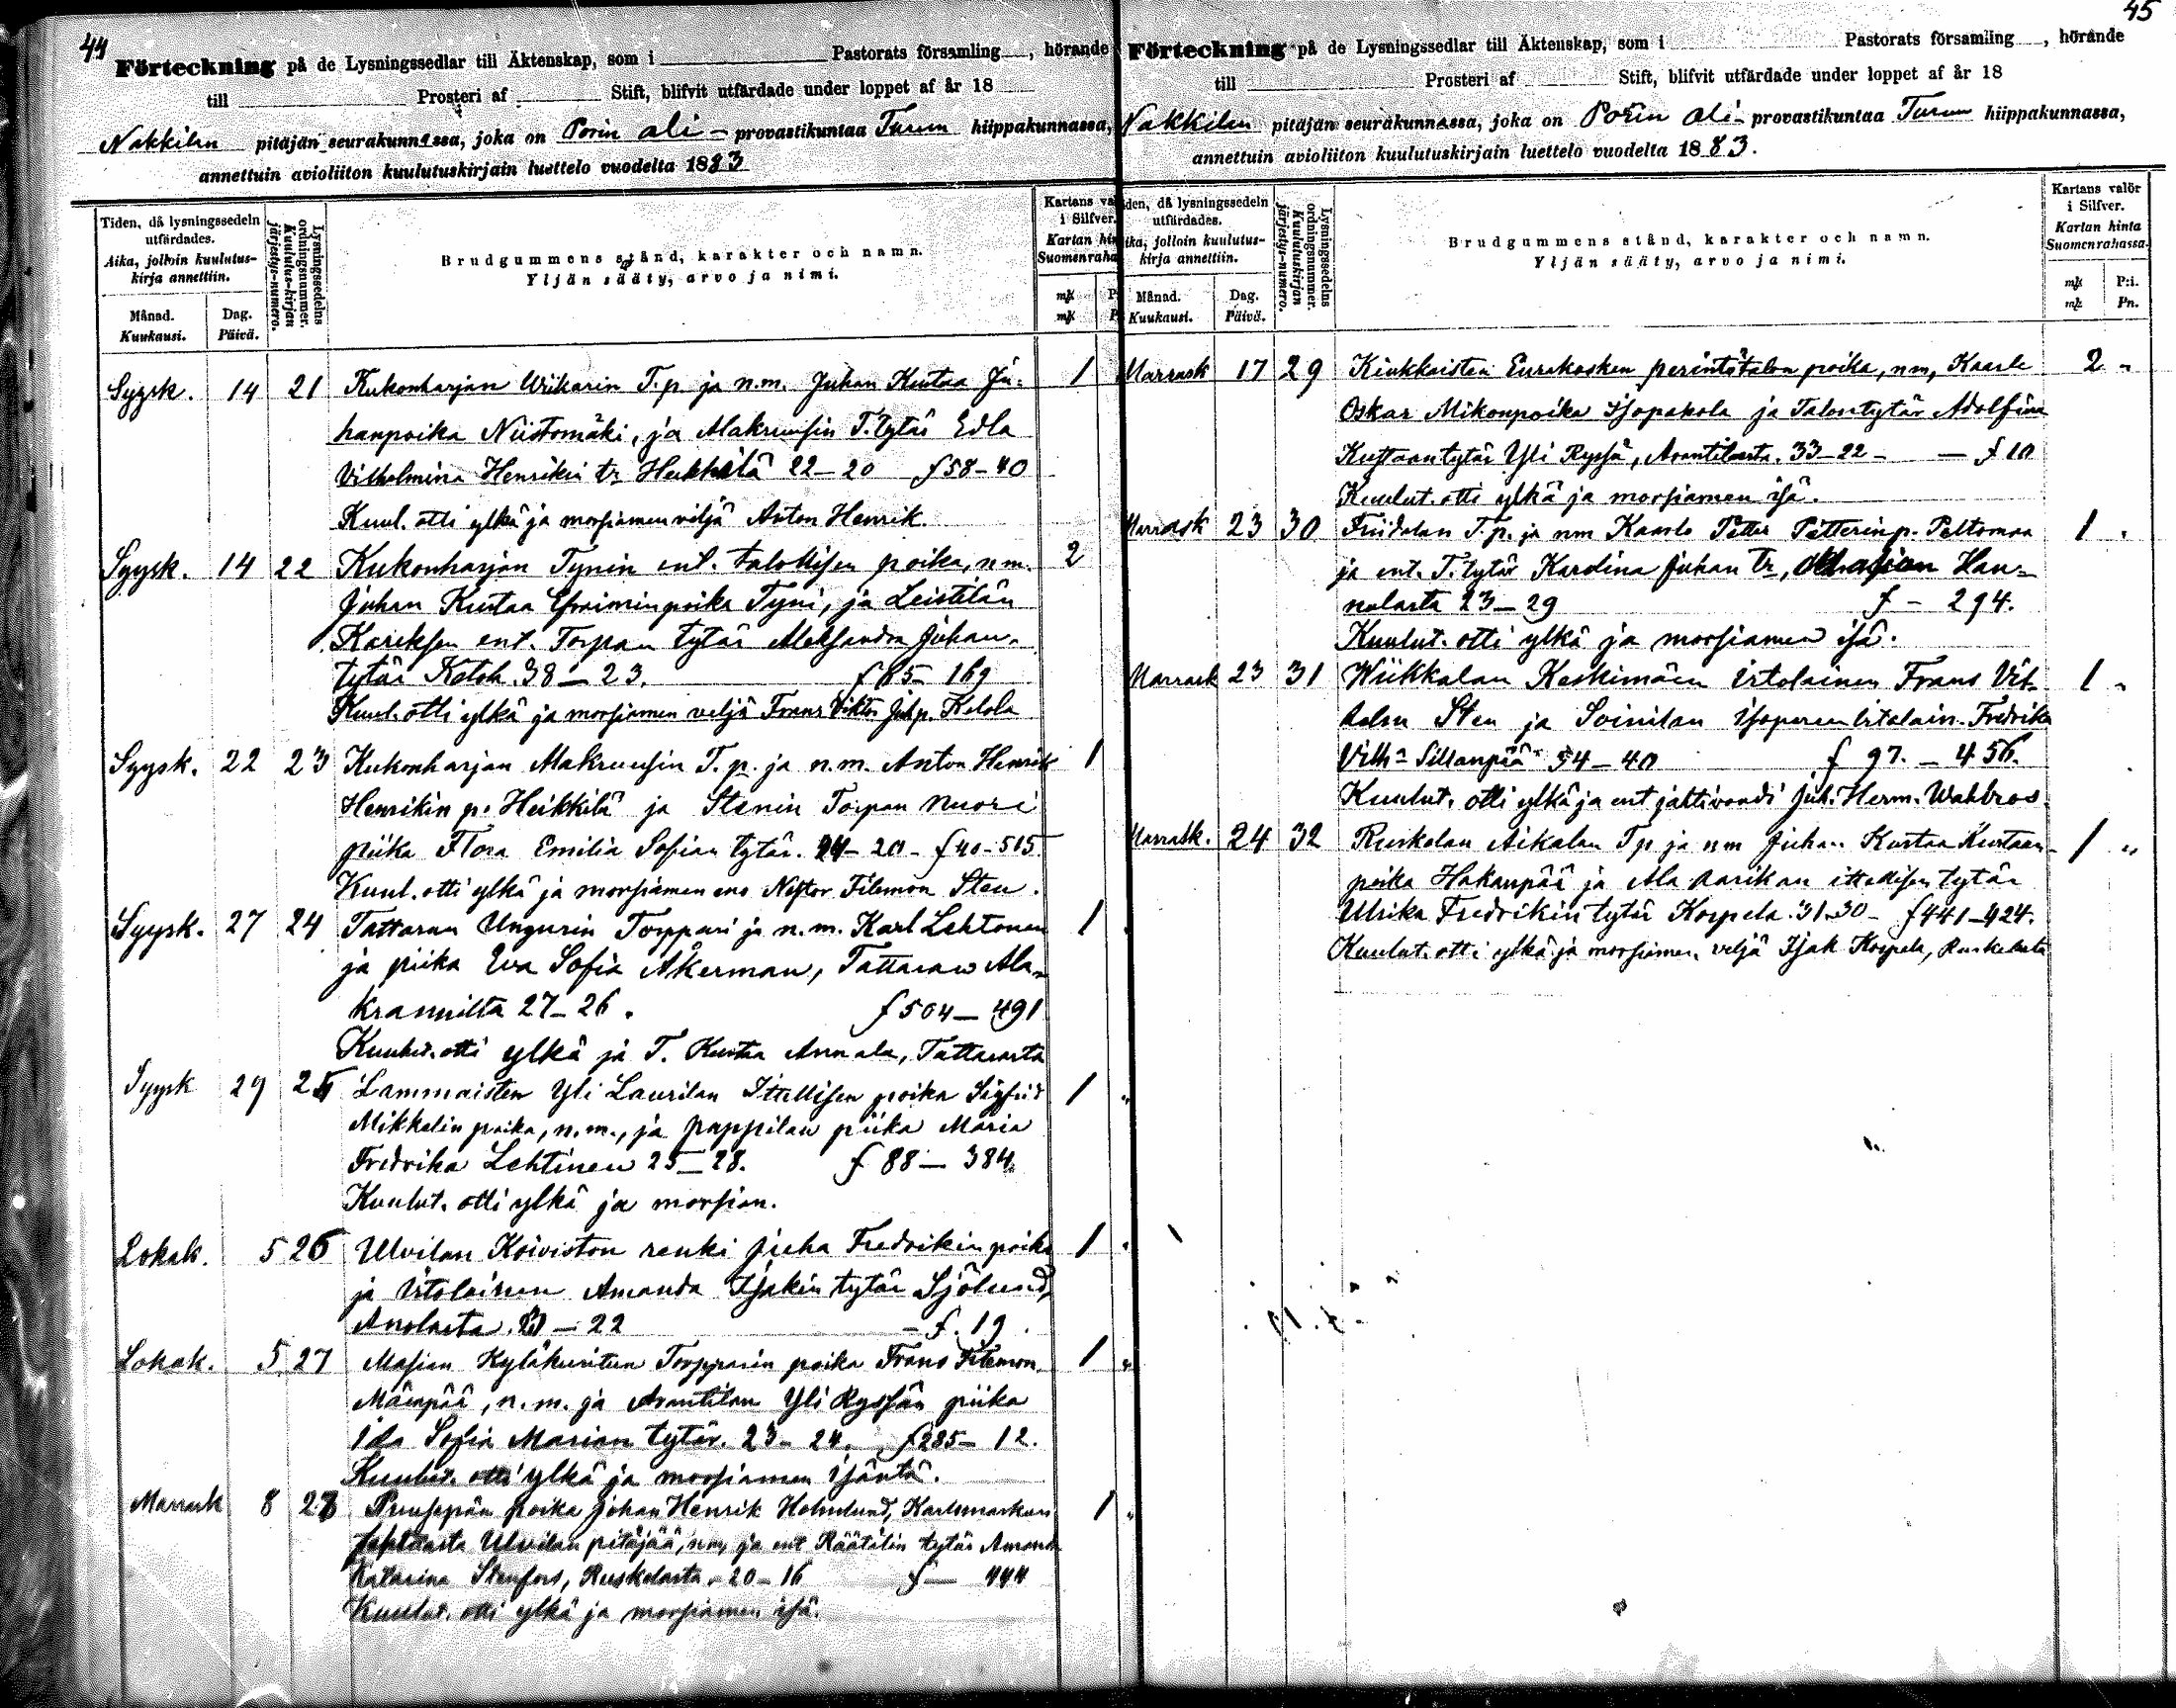 44
Förteckning på de Lysningssedlar till Äktenskap, som i Pastorats församling, hörande
till Prosteri af Stift, blifvit utfärdade under loppet af år 18
Nakkilan pitäjän seurakunnassa, joka on Porin ali- provastikuntaa Turun hiippakunnassa,
annettuin avioliiton kuulutuskirjain luettelo vuodelta 1883
Tiden, då lysningssedeln utfärdades.
Aika, jolloin kuulutuskirja annettiin.
Månad. Kuukausi.
Dag. Päivä.
Lysningssedelns ordningsnummer.
Kuulutus-kirjan järjestys-numero.
Brudgummens stånd, karakter och namn.
Yljän sääty, arvo ja nimi.
Kartans va
i Silfver.
Kartan hin
Suomenraha
mk
mk
Syysk. 14 21 Kukonharjan Uikarin T.p. ja n.m. Juhan Kustaa Ju- 1
hanpoika Niistomäki, ja Makruusin T. tytär Edla
Vilhelmina Henrikin tr Heikkilä 22–20 f58–40
Kuul. otti ylkä ja morsiamen veljä Anton Henrik.
Syysk. 14 22 Kukonharjan Tynin ent. talollisen poika, n.m. 2
Juhan Kustaa Efraiminpoika Tyni, ja Leistilän
Kareksen ent. Torpan tytär Aleksandra Juhan-
tytär Ketola. 38–23. f 85–169
Kuul. otti ylkä ja morsiamen veljä Frans Viktor Juh.p. Kelola
Syysk. 22 23 Kukonharjan Makruusin T.p. ja n.m. Anton Henrik 1
Henrikin p. Heikkilä ja Stenin Torpan nuori
piika Flora Emilia Sofian tytär. 24–20– f40–515.
Kuul. otti ylkä ja morsiamen eno Nestor Filemon Sten.
Syysk. 27 24 Tattaran Ungurin Torppari ja n.m. Karl Lehtonen 1
ja piika Eva Sofia Åkerman, Tattaran Ala-
krannilta 27–26. f504–491
Kuulut. otti ylkä ja T. Kustaa Annala, Tattarasta
Syysk 29 25 Lammaisten Yli Laurilan Itsellisen poika Sigfrid 1 "
Mikkelin poika, n.m., ja pappilan piika Maria
Fredrika Lehtinen 25–28. f 88–384.
Kuulut. otti ylkä ja morsian.
Lokak. 5 26 Ulvilan Koiviston renki Juha Fredrikin poika 1 "
ja Irtolainen Amanda Isakin tytär Sjölund,
Anolasta. –22 –f. 19.
Lokak. 5 27 Masian Kyläkuritun Torpparin poika Frans Filemon 1 "
Mäenpää, n.m. ja Arantilan Yli Ryssän piika
Ida Sofia Marian tytär. 23–24. f285–12.
Kuulut. otti ylkä ja morsiamen isäntä.
Marrask 8 28 Puusepän poika Johan Henrik Holmlund, Karlsmarkun 1 "
tehtaasta Ulvilan pitäjää, n.m, ja ent Räätälin tytär Amanda
Katarina Stenfors, Ruskelasta – 20–16 f— 444
Kuulut. otti ylkä ja morsiamen isä.
45
Förteckning på de Lysningssedlar till Äktenskap, som i Pastorats församling, hörande
till Prosteri af Stift, blifvit utfärdade under loppet af år 18
Nakkilan pitäjän seurakunnassa, joka on Porin ali- provastikuntaa Turun hiippakunnassa,
annettuin avioliiton kuulutuskirjain luettelo vuodelta 1883.
iden, då lysningssedeln utfärdades.
ika, jolloin kuulutuskirja annettiin.
Månad. Kuukausi.
Dag. Päivä.
Lysningssedelns ordningsnummer.
Kuulutuskirjan järjestys-numero.
Brudgummens stånd, karakter och namn.
Yljän sääty, arvo ja nimi.
Kartans valör
i Silfver.
Kartan hinta
Suomenrahassa.
mk P:i.
mk Pn.
Marrask 17 29 Kiukkaisten Eurakosken perintötalon poika, nm, Kaarle 2 "
Oskar Mikonpoika Isopakola ja Talontytär Adolfina
Kustaantytär Yli Ryssä, Arantilasta. 33–22– — f 10
Kuulut. otti ylkä ja morsiamen isä.
Marrask 23 30 Friidalan T.p. ja nm Kaarlo Petter Petterinp. Peltomaa 1 "
ja ent. T. tytär Karolina Juhan tr, Han-
nulasta 23–29 f – 294.
Kuulut. otti ylkä ja morsiamen isä.
Marrask 23 31 Wiikkalan Keskimäen irtolainen Frans Vil- 1 "
helm Sten ja Soinilan Isoperen Irtolain. Fredrika
Vilh:a Sillanpää 54–40 f 97.–456.
Kuulut. otti ylkä ja ent jahtivouti Juh. Herm. Wahlroos.
Marrask. 24 32 Ruskelan Aikalan T p ja nm Juhan Kustaa Kustaan- 1 "
poika Hakanpää ja Ala Haarikan ittellisen tytär
Ulrika Fredrikin tytär Korpela. 31–30– f441–424.
Kuulut. otti ylkä ja morsiamen veljä Isak Korpela, Ruskelasta